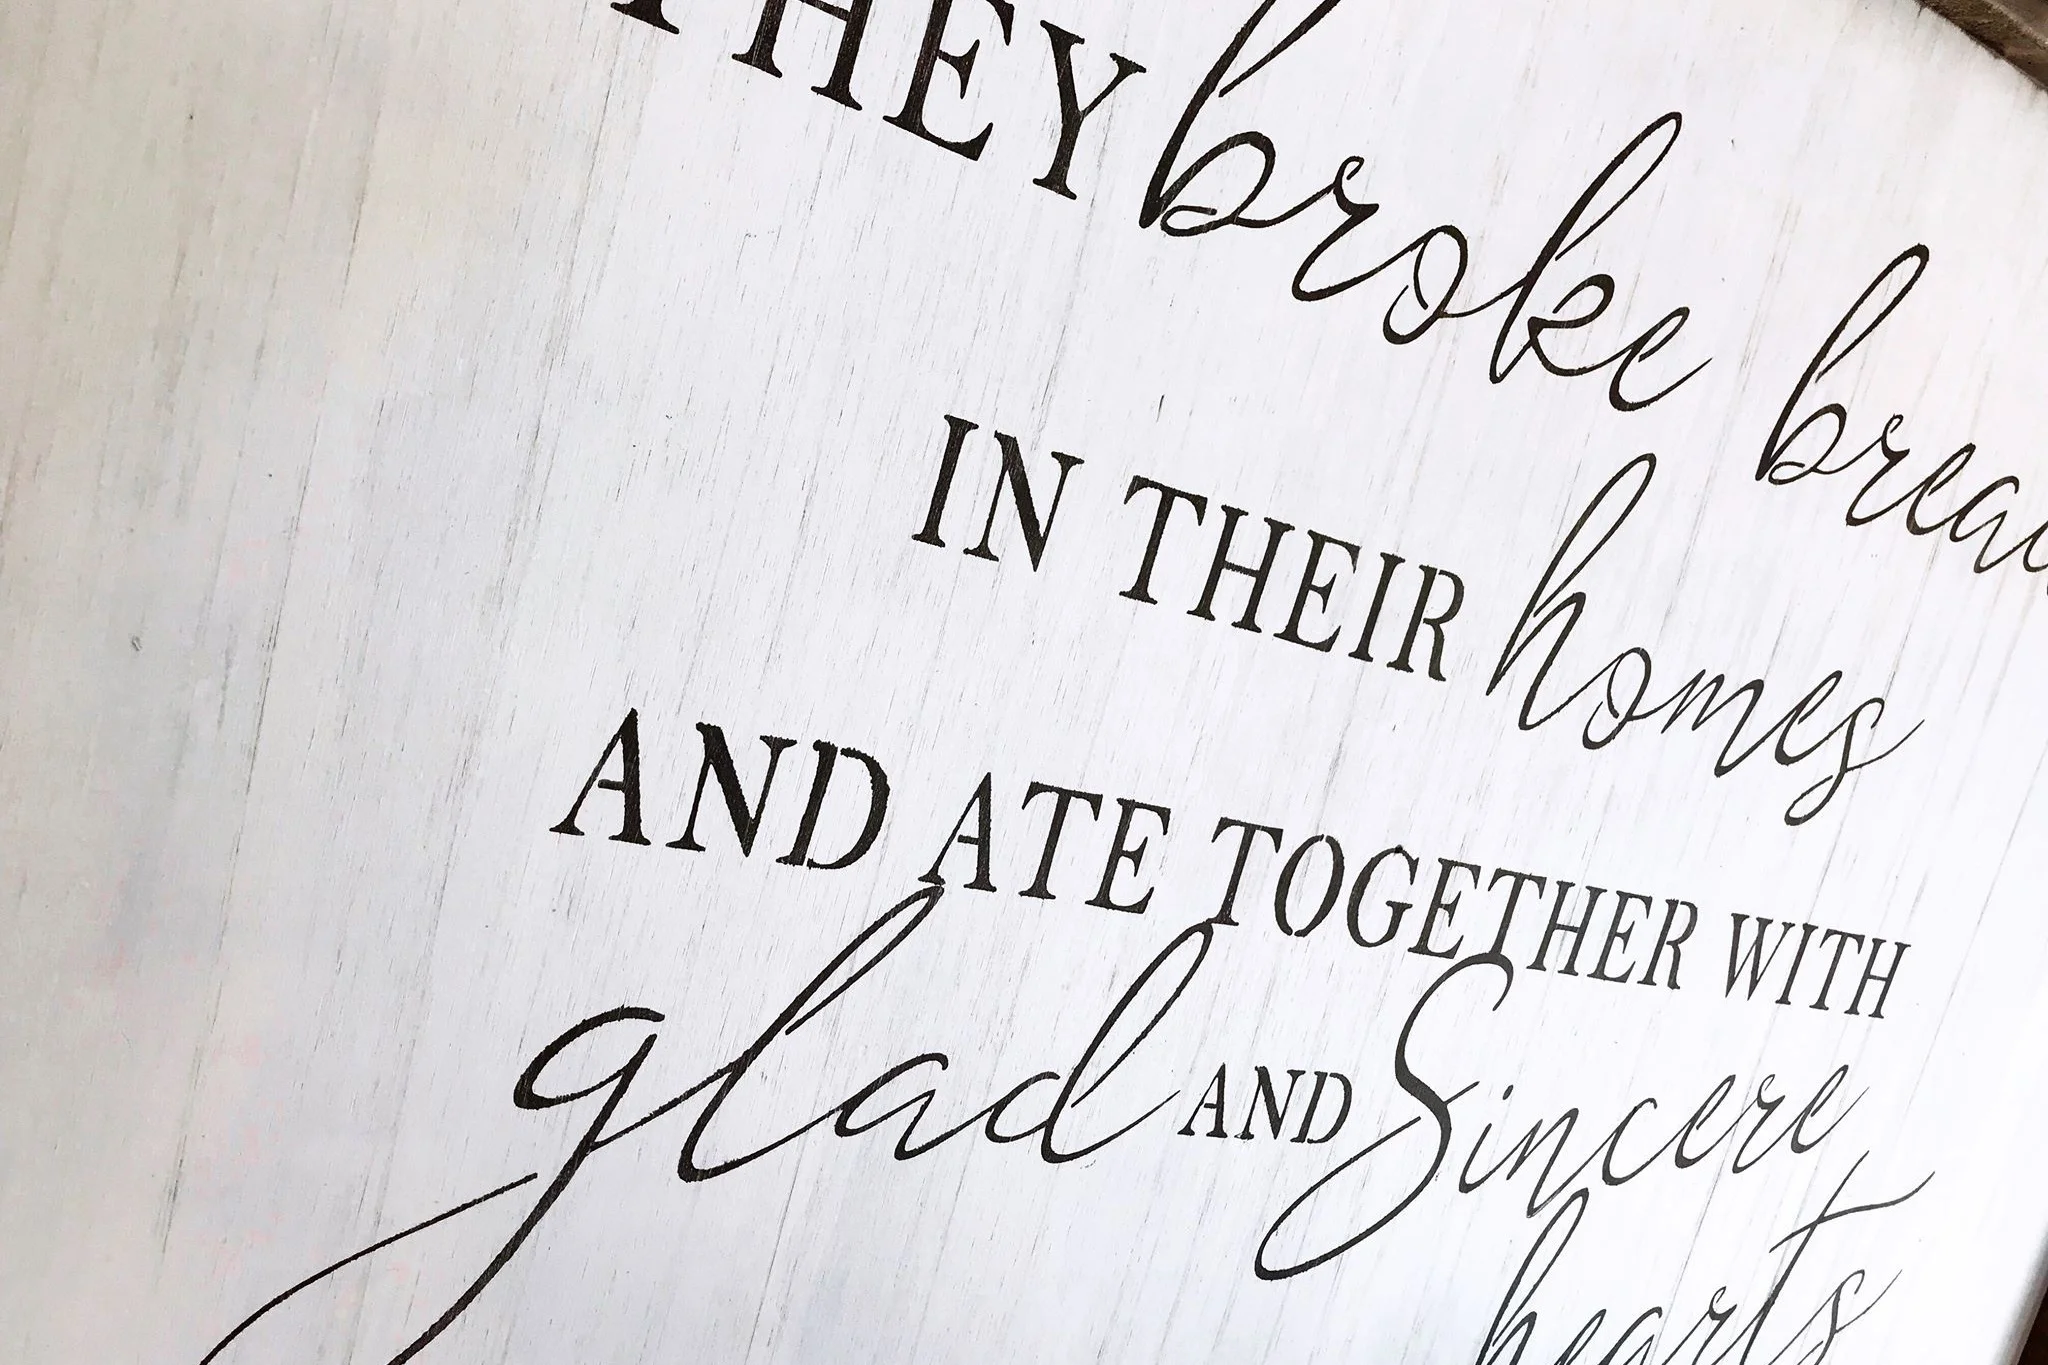 THEY broke bread
IN THEIR homes
AND ATE TOGETHER WITH
glad AND Sincere
hearts